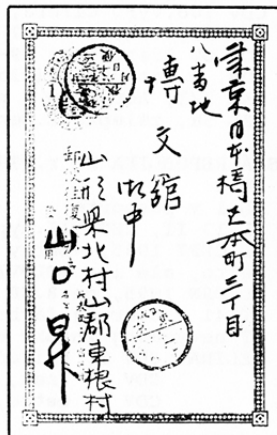 東京日本橋区本町三丁目
八番地
博文館
御中
山形県北村山郡東根村
山口昇